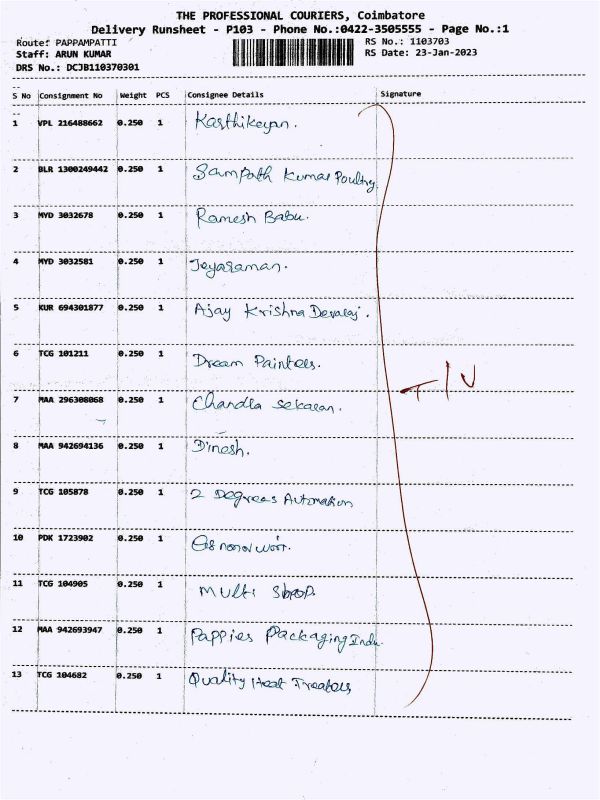 THE PROFESSIONAL COURIERS, Coimbatore
Delivery Runsheet - P103 - Phone No.:0422-3505555 - Page No.:1
Route: PAPPAMPATTI RS No.: 1103703
Staff: ARUN KUMAR RS Date: 23-Jan-2023
DRS No.: DCJB110370301
S No Consignment No Weight PCS Consignee Details Signature
1 VPL 216488662 0.250 1 Karthikeyan.
2 BLR 1300249442 0.250 1 Sampath Kumar Poultry.
3 MYD 3032678 0.250 1 Ramesh Babu.
4 MYD 3032581 0.250 1 Jeyaraman.
5 KUR 694301877 0.250 1 Ajay Krishna Devaraj.
6 TCG 101211 0.250 1 Dream Painters.
T/N
7 MAA 296308068 0.250 1 Chandra Sekaran.
8 MAA 942694136 0.250 1 Dinesh.
9 TCG 105878 0.250 1 2 Degrees Automation
10 PDK 1723902 0.250 1
11 TCG 104905 0.250 1 Multi Shop.
12 MAA 942693947 0.250 1 Pappies Packaging Indu.
13 TCG 104682 0.250 1 Quality Heat Treaters